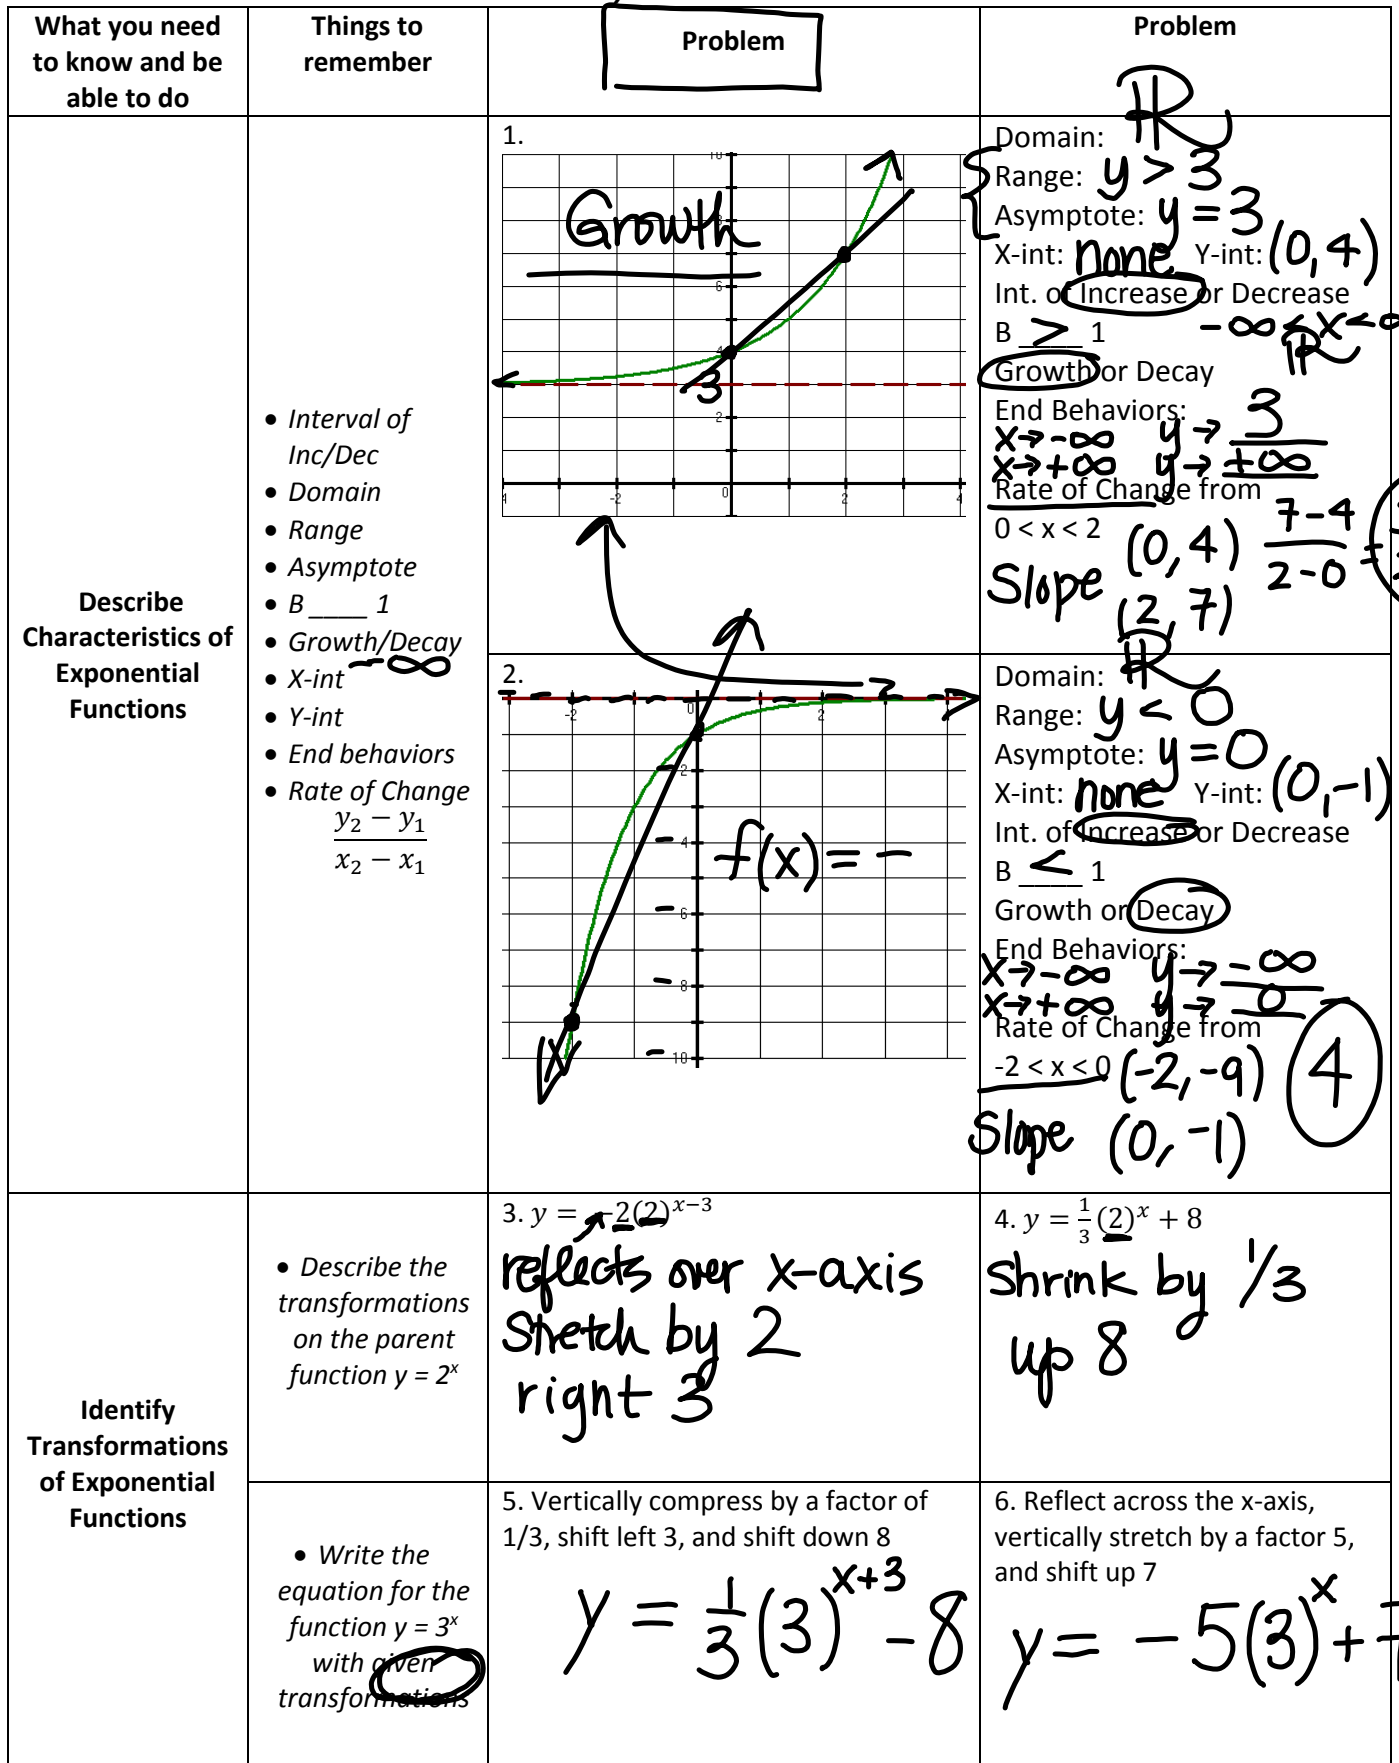 What you need
to know and be
able to do
Things to
remember
Problem
Problem
Describe
Characteristics of
Exponential
Functions
• Interval of
Inc/Dec
• Domain
• Range
• Asymptote
• B ____ 1
• Growth/Decay
• X-int -∞
• Y-int
• End behaviors
• Rate of Change
y₂ − y₁
x₂ − x₁
1.
Growth
10
8
6
4
3
2
-4 -2 0 2 4
Domain: ℝ
Range: y > 3
Asymptote: y = 3
X-int: none Y-int: (0, 4)
Int. of Increase or Decrease
B > 1 -∞ < x < ∞
ℝ
Growth or Decay
End Behaviors:
x→-∞ y→ 3
x→+∞ y→ +∞
Rate of Change from
0 < x < 2 (0, 4) 7-4
2-0 =
Slope (2, 7)
2.
-2 0 2
-2
-4
f(x) = -
-6
-8
-10
Domain: ℝ
Range: y < 0
Asymptote: y = 0
X-int: none Y-int: (0, -1)
Int. of Increase or Decrease
B < 1
Growth or Decay
End Behaviors:
x→-∞ y→ -∞
x→+∞ y→ 0
Rate of Change from
-2 < x < 0 (-2, -9) 4
Slope (0, -1)
Identify
Transformations
of Exponential
Functions
• Describe the
transformations
on the parent
function y = 2ˣ
3. y = −2(2)ˣ⁻³
reflects over x-axis
Stretch by 2
right 3
4. y = 1/3 (2)ˣ + 8
Shrink by 1/3
up 8
• Write the
equation for the
function y = 3ˣ
with given
transformations
5. Vertically compress by a factor of
1/3, shift left 3, and shift down 8
y = 1/3 (3)ˣ⁺³ - 8
6. Reflect across the x-axis,
vertically stretch by a factor 5,
and shift up 7
y = -5(3)ˣ + 7